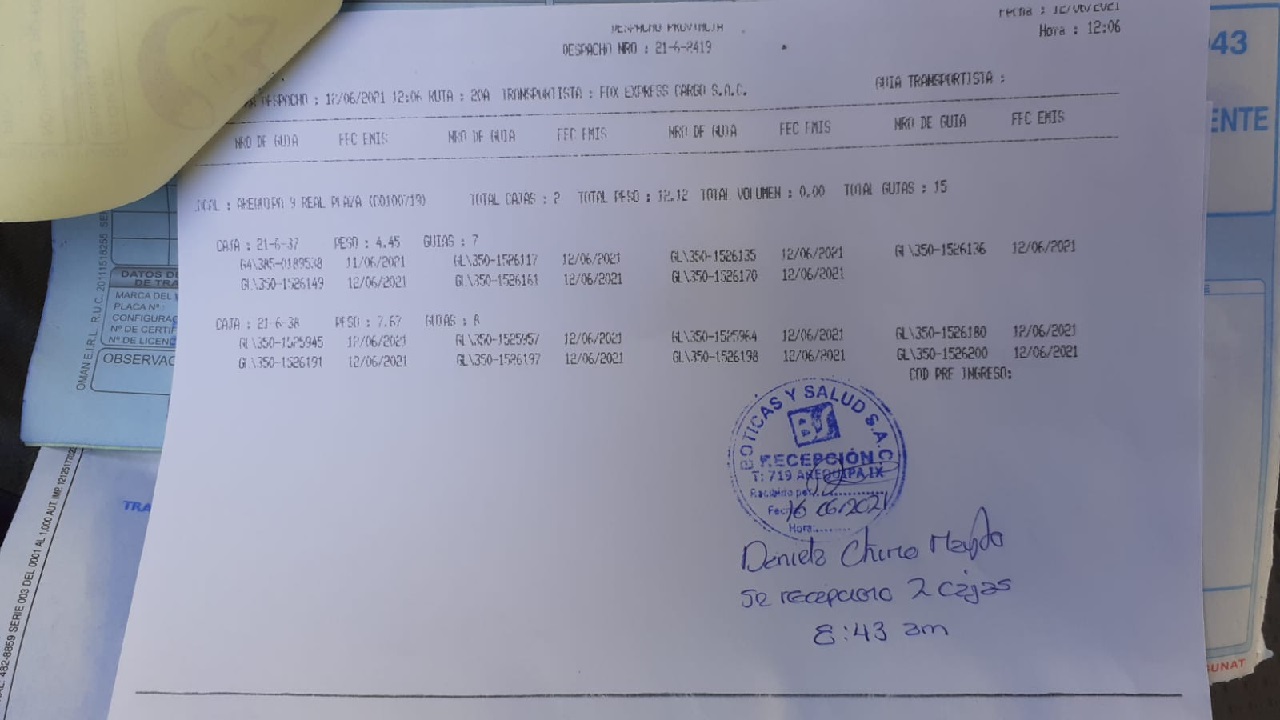 DESPACHO PROVINCIA
Hora : 12:06
DESPACHO NRO : 21-6-2419
DESPACHO : 12/06/2021 12:06 RUTA : 20A TRANSPORTISTA : FOX EXPRESS CARGO S.A.C. GUIA TRANSPORTISTA :
NRO DE GUIA FEC EMIS NRO DE GUIA FEC EMIS NRO DE GUIA FEC EMIS NRO DE GUIA FEC EMIS
LOCAL : AREQUIPA 9 REAL PLAZA (00100719) TOTAL CAJAS : 2 TOTAL PESO : 12.12 TOTAL VOLUMEN : 0.00 TOTAL GUIAS : 15
CAJA : 21-6-37 PESO : 4.45 GUIAS : 7
GA\385-0189538 11/06/2021 GL\350-1526117 12/06/2021 GL\350-1526135 12/06/2021 GL\350-1526136 12/06/2021
GL\350-1526149 12/06/2021 GL\350-1526161 12/06/2021 GL\350-1526170 12/06/2021
CAJA : 21-6-38 PESO : 7.67 GUIAS : 8
GL\350-1525945 12/06/2021 GL\350-1525957 12/06/2021 GL\350-1525964 12/06/2021 GL\350-1526180 12/06/2021
GL\350-1526191 12/06/2021 GL\350-1526197 12/06/2021 GL\350-1526198 12/06/2021 GL\350-1526200 12/06/2021
COD PRE INGRESO:
BOTICAS Y SALUD S.A.C
BS
RECEPCIÓN
T: 719 AREQUIPA IX
Recibido por
Fecha 16 06/2021
Hora
Daniela Chura
se recepciono 2 cajas
8:43 am
43
ENTE
DATOS DE
DE TRA
MARCA DEL
PLACA N° :
CONFIGURAC
N° DE CERTIF
N° DE LICENC
OBSERVAC
OMAN E.I.R.L. R.U.C. 20111518255
TRA
482-8859 SERIE 003 DEL 0001 AL 1,000 AUT. IMP.
SUNAT